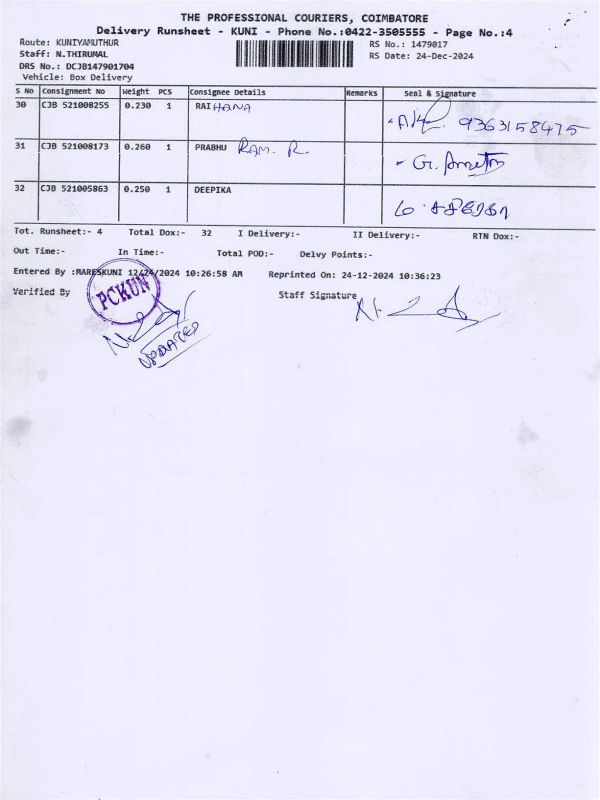 THE PROFESSIONAL COURIERS, COIMBATORE
Delivery Runsheet - KUNI - Phone No.:0422-3505555 - Page No.:4
Route: KUNIYAMUTHUR RS No.: 1479017
Staff: N.THIRUMAL RS Date: 24-Dec-2024
DRS No.: DCJB147901704
Vehicle: Box Delivery
S No Consignment No Weight PCS Consignee Details Remarks Seal & Signature
30 CJB 521008255 0.230 1 RAIHANA 9363158475
31 CJB 521008173 0.260 1 PRABHU RAM. R.
32 CJB 521005863 0.250 1 DEEPIKA
Tot. Runsheet:- 4 Total Dox:- 32 I Delivery:- II Delivery:- RTN Dox:-
Out Time:- In Time:- Total POD:- Delvy Points:-
Entered By :MARESKUNI 12/24/2024 10:26:58 AM Reprinted On: 24-12-2024 10:36:23
Verified By Staff Signature
PCKUN
UPDATED